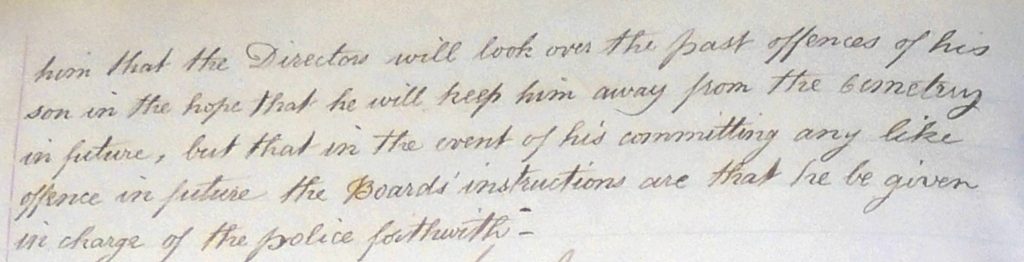 him that the Directors will look over the past offences of his
son in the hope that he will keep him away from the cemetruy
in future, but that in the event of his committing any like
offence in future the Boards' instructions are that he be given
in charge of the police forthwith -